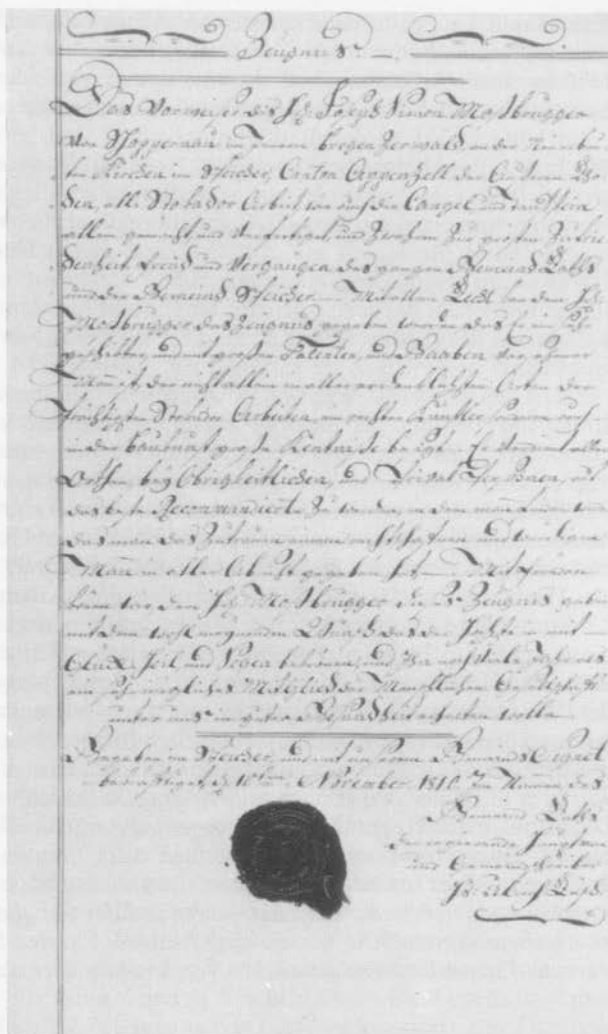 Zeugnus
Das Vorweiser dis Hr. Joseph Simon Mosbrugger
von Schoppernau im Innern bregenzerwald an der Neuerbau
ten Kirchen in Speicher, Canton Appenzell der Äussern Rho
den, alle Stokador Arbeit, wie auch die Canzel und Taufstein
allein gemacht und verfertiget, und zwahren zur grosen Zufrie
denheit freüd und Vergnügen des ganzen Gemeind Raths
und der Gemeind Speicher. Mit allem Recht kan dem Hr.
Mosbrugger das Zeugnus gegeben werden das Er ein sehr
geschikter, und mit grosen Talenten, und Gaaben
Mann ist, der nicht allein in aller Arten der
Stokador Arbeiten, ein rechter Künstler, sondern auch
in der baukunst grose Kentnisse besizt. Er verdient aller
Orthen, bey Obrigkeitlichen, und Privat Personen, auf
das beste Recommandiert zu werden, in dem man
das man das Zutrauen einem rechtschafenen und würdigen
Mann in aller Absicht gegeben hat. Mit
wir dem Hr. Mosbrugger dieses Zeugnus geben
mit dem wohlmeynenden Wunsch das der Höchste in mit
Glück, Heil und Segen bekrönen, und Ihn noch viele Jahre als
ein Mitglied der Menschlichen Gesellschaft
unter uns in guter Gesundheit erhalten wolle
Gegeben in Speicher, und mit unserm Gemeinds Sigel
bekräftiget, d. 10ten November 1810. Im Namen des
Gemeind Raths
der regierende Hauptman
und Gemeindschreiber